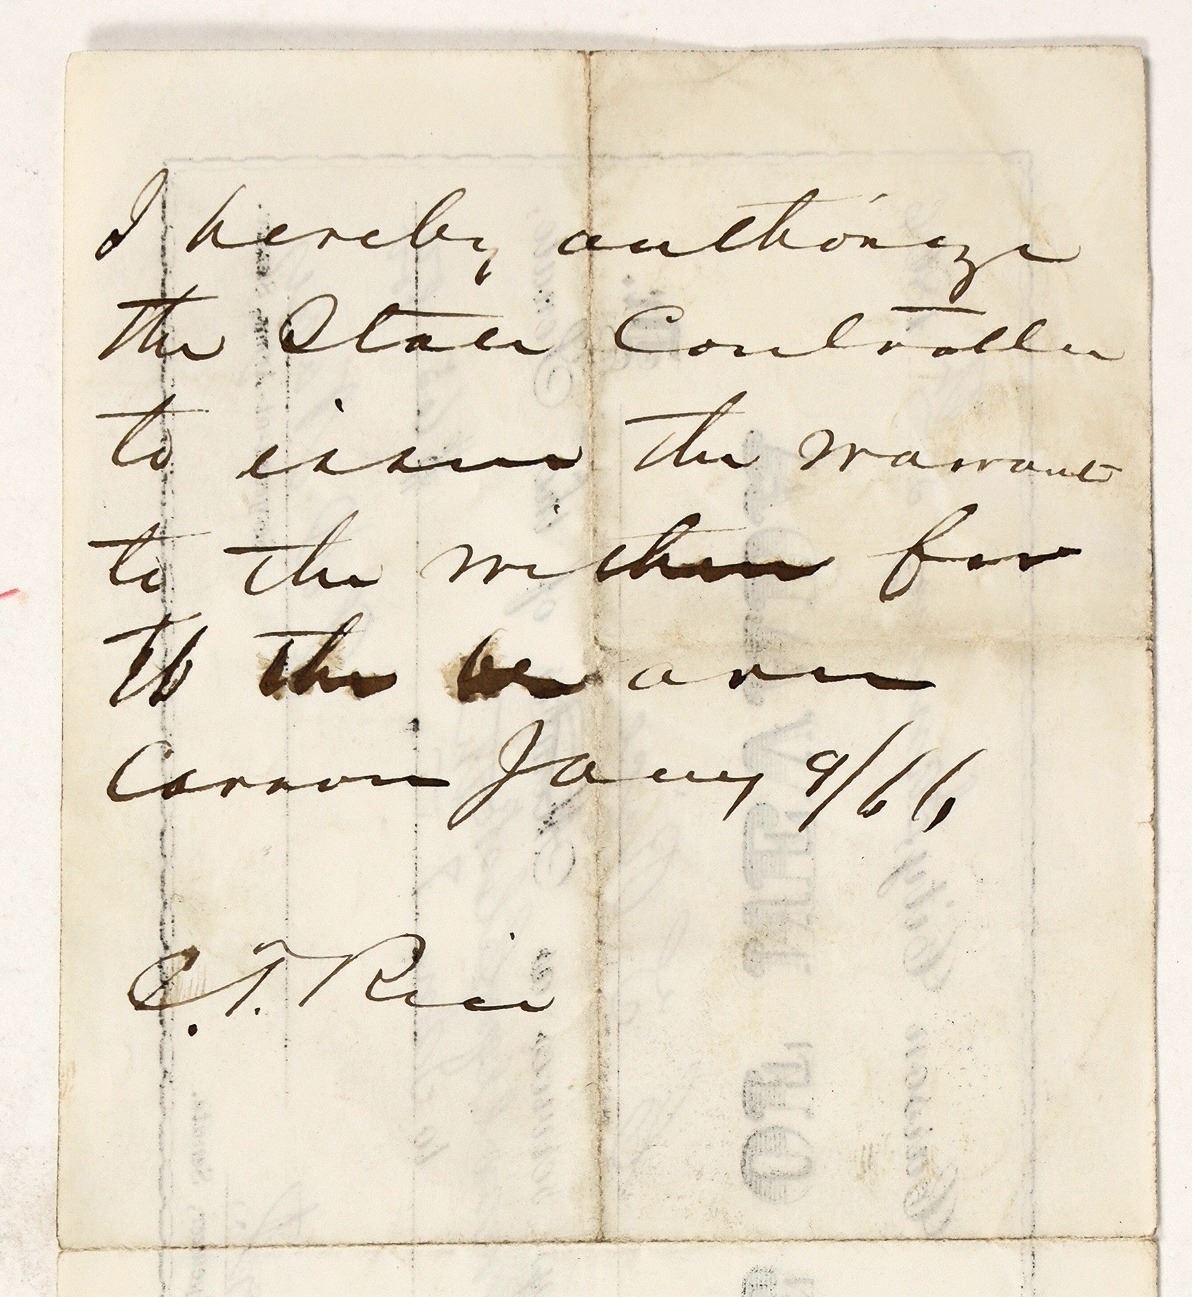 I hereby authorize
the State Controller
to issue the warrant
to the within for
to the bearer
Carson Jany 9/66
C. T. Rice